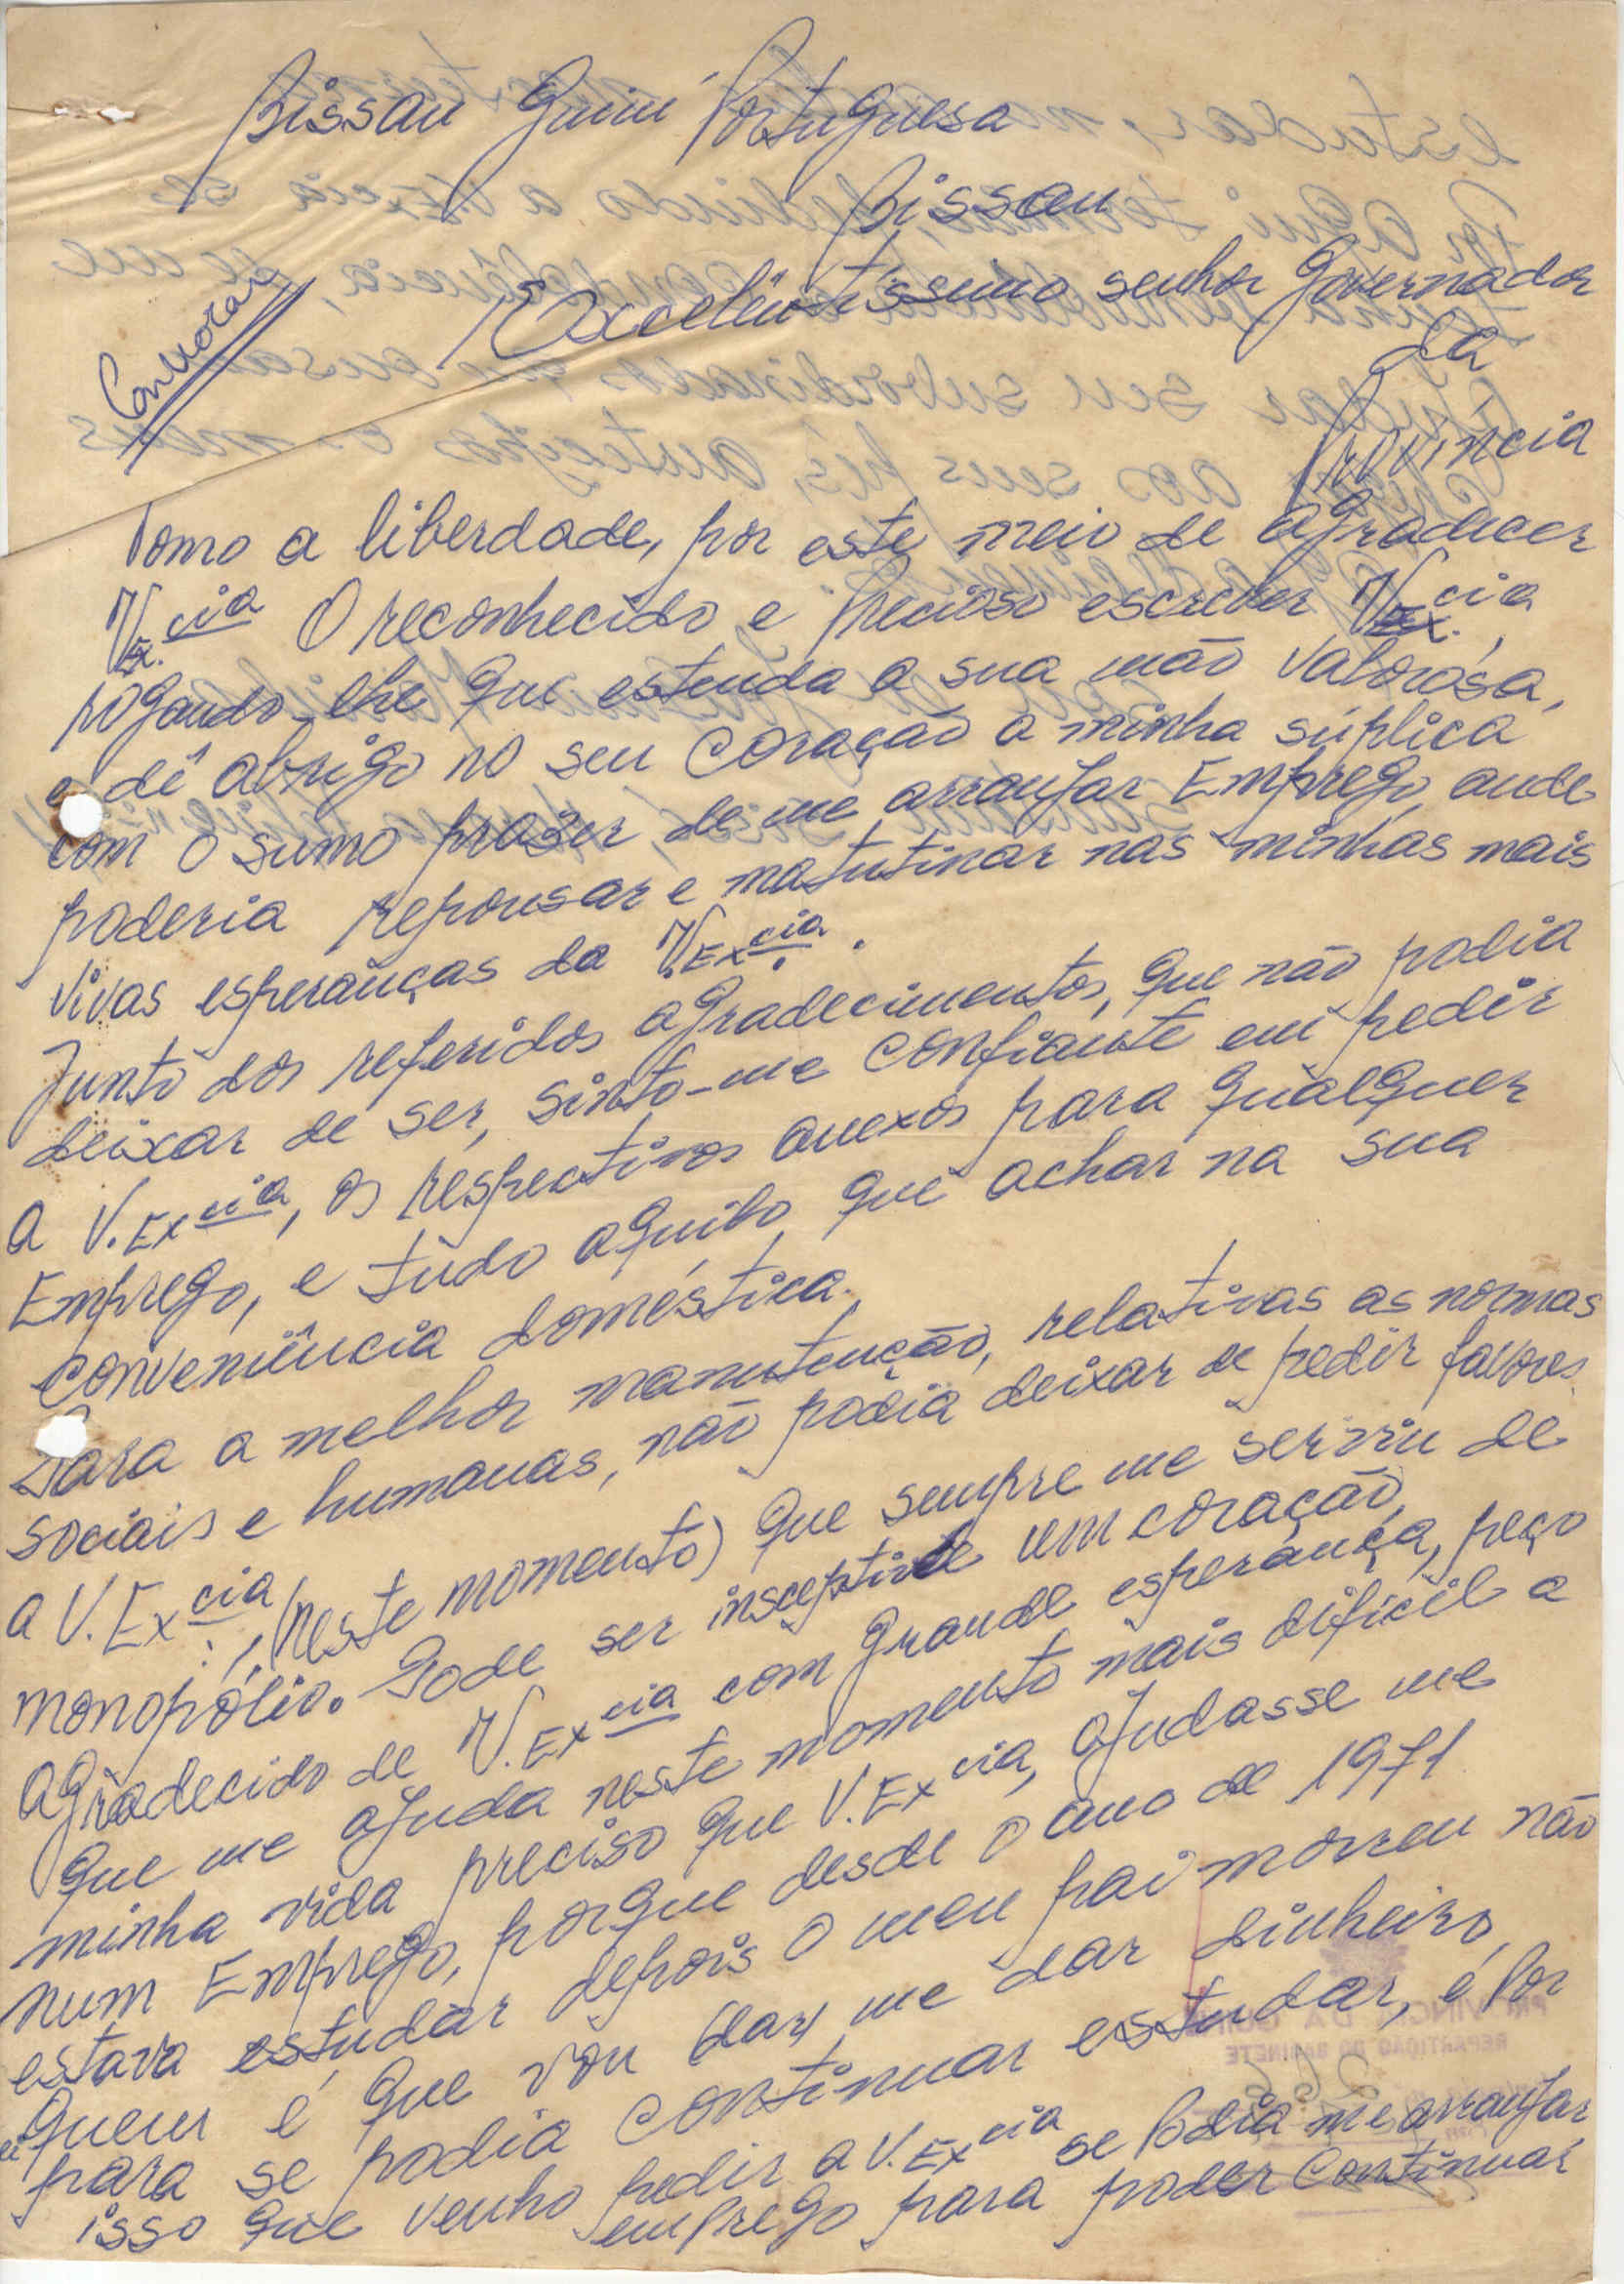 Bissau Guiné Portuguesa
Bissau
Excelêntissimo senhor Governador
da
Província
Convocar
Tomo a liberdade, por este meio de agradecer
V.Ex.cia O reconhecido e precioso escrever V.Ex.cia,
rogando-lhe que estenda a sua mão valorosa,
e dê abrigo no seu coração a minha súplica
com o sumo prazer de me arranjar Emprego, onde
poderia repousar e matutinar nas minhas mais
vivas esperanças da V.Excia.
Junto dos referidos agradecimentos, que não podia
deixar de ser, sinto-me confiante em pedir
a V.Excia, os respectivos anexos para qualquer
Emprego, e tudo aquilo que achar na sua
conveniência doméstica.
Para a melhor manutenção, relativas as normas
sociais e humanas, não podia deixar de pedir favores
a V.Excia, (neste momento) que sempre me serviu de
monopólio. Pode ser insceptivel um coração,
agradecido de V.Excia com grande esperança, peço
que me ajuda neste momento mais dificil a
minha vida preciso que V.Excia, ajudasse me
num Emprego, porque desde o ano de 1971
estava estudar depois o meu pai morreu não
quem é que vou dar me dar dinheiro,
para se podia continuar estudar, é por
isso que venho pedir a V.Excia se podia me arranjar
emprego para poder continuar
PROVINCIA DA
REPARTIÇÃO DO GABINETE